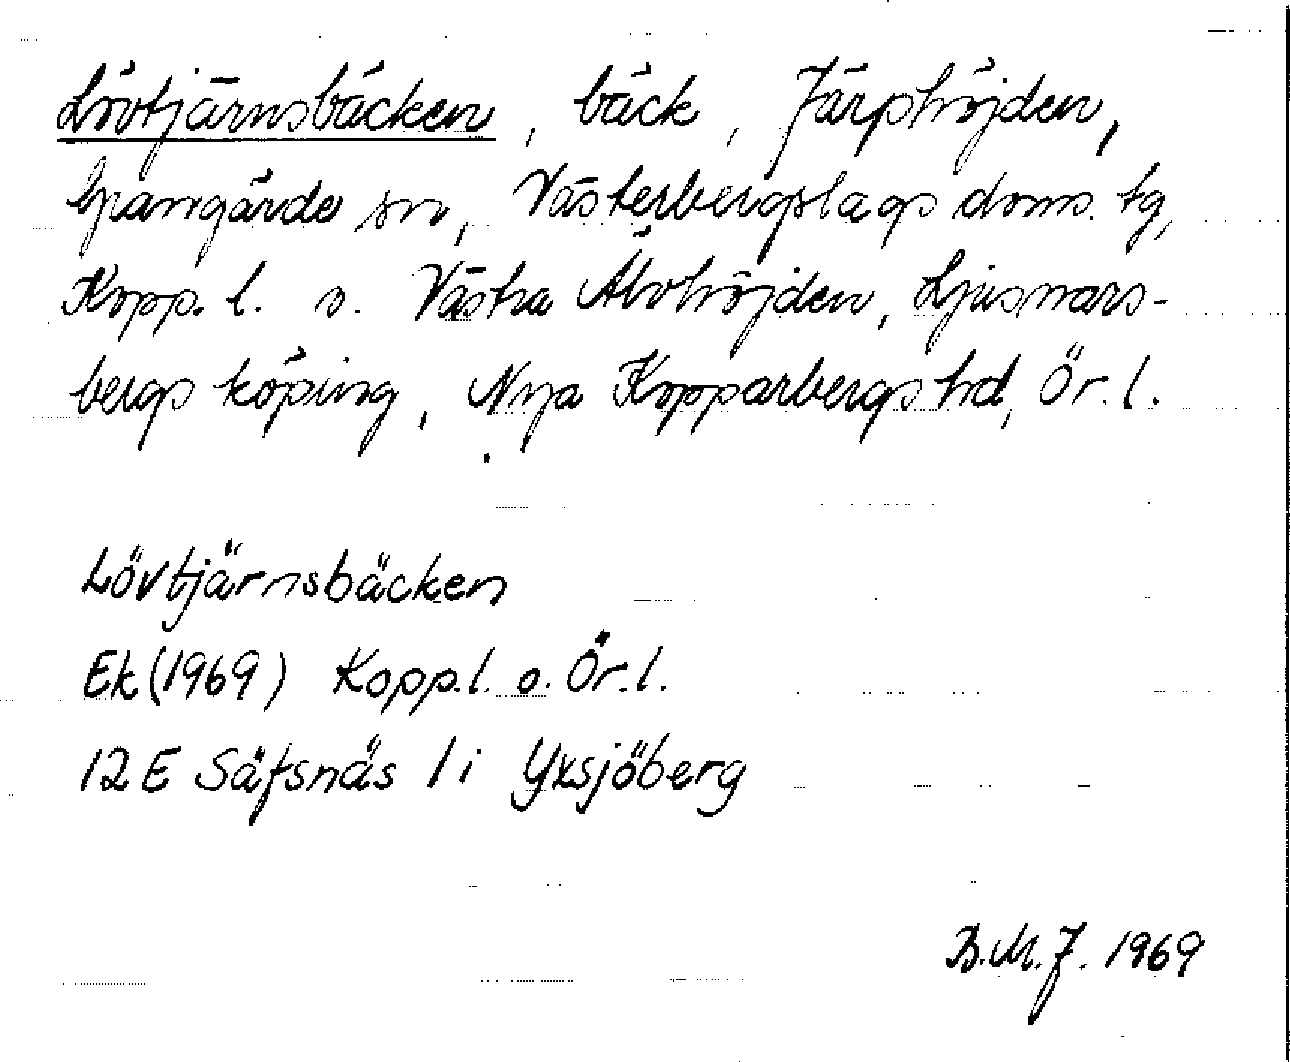 Lövtjärnsbäcken, bäck, Järphöjden,
Grangärde sn, Västerbergslags doms. tg,
Kopp. l. o. Västra Älvhöjden, Ljusnars-
bergs köping, Nya Kopparbergs hd, Ör. l.
Lövtjärnsbäcken
Ek (1969) Kopp. l. o. Ör. l.
12 E Säfsnäs 1 i Yxsjöberg
B.M.J. 1969